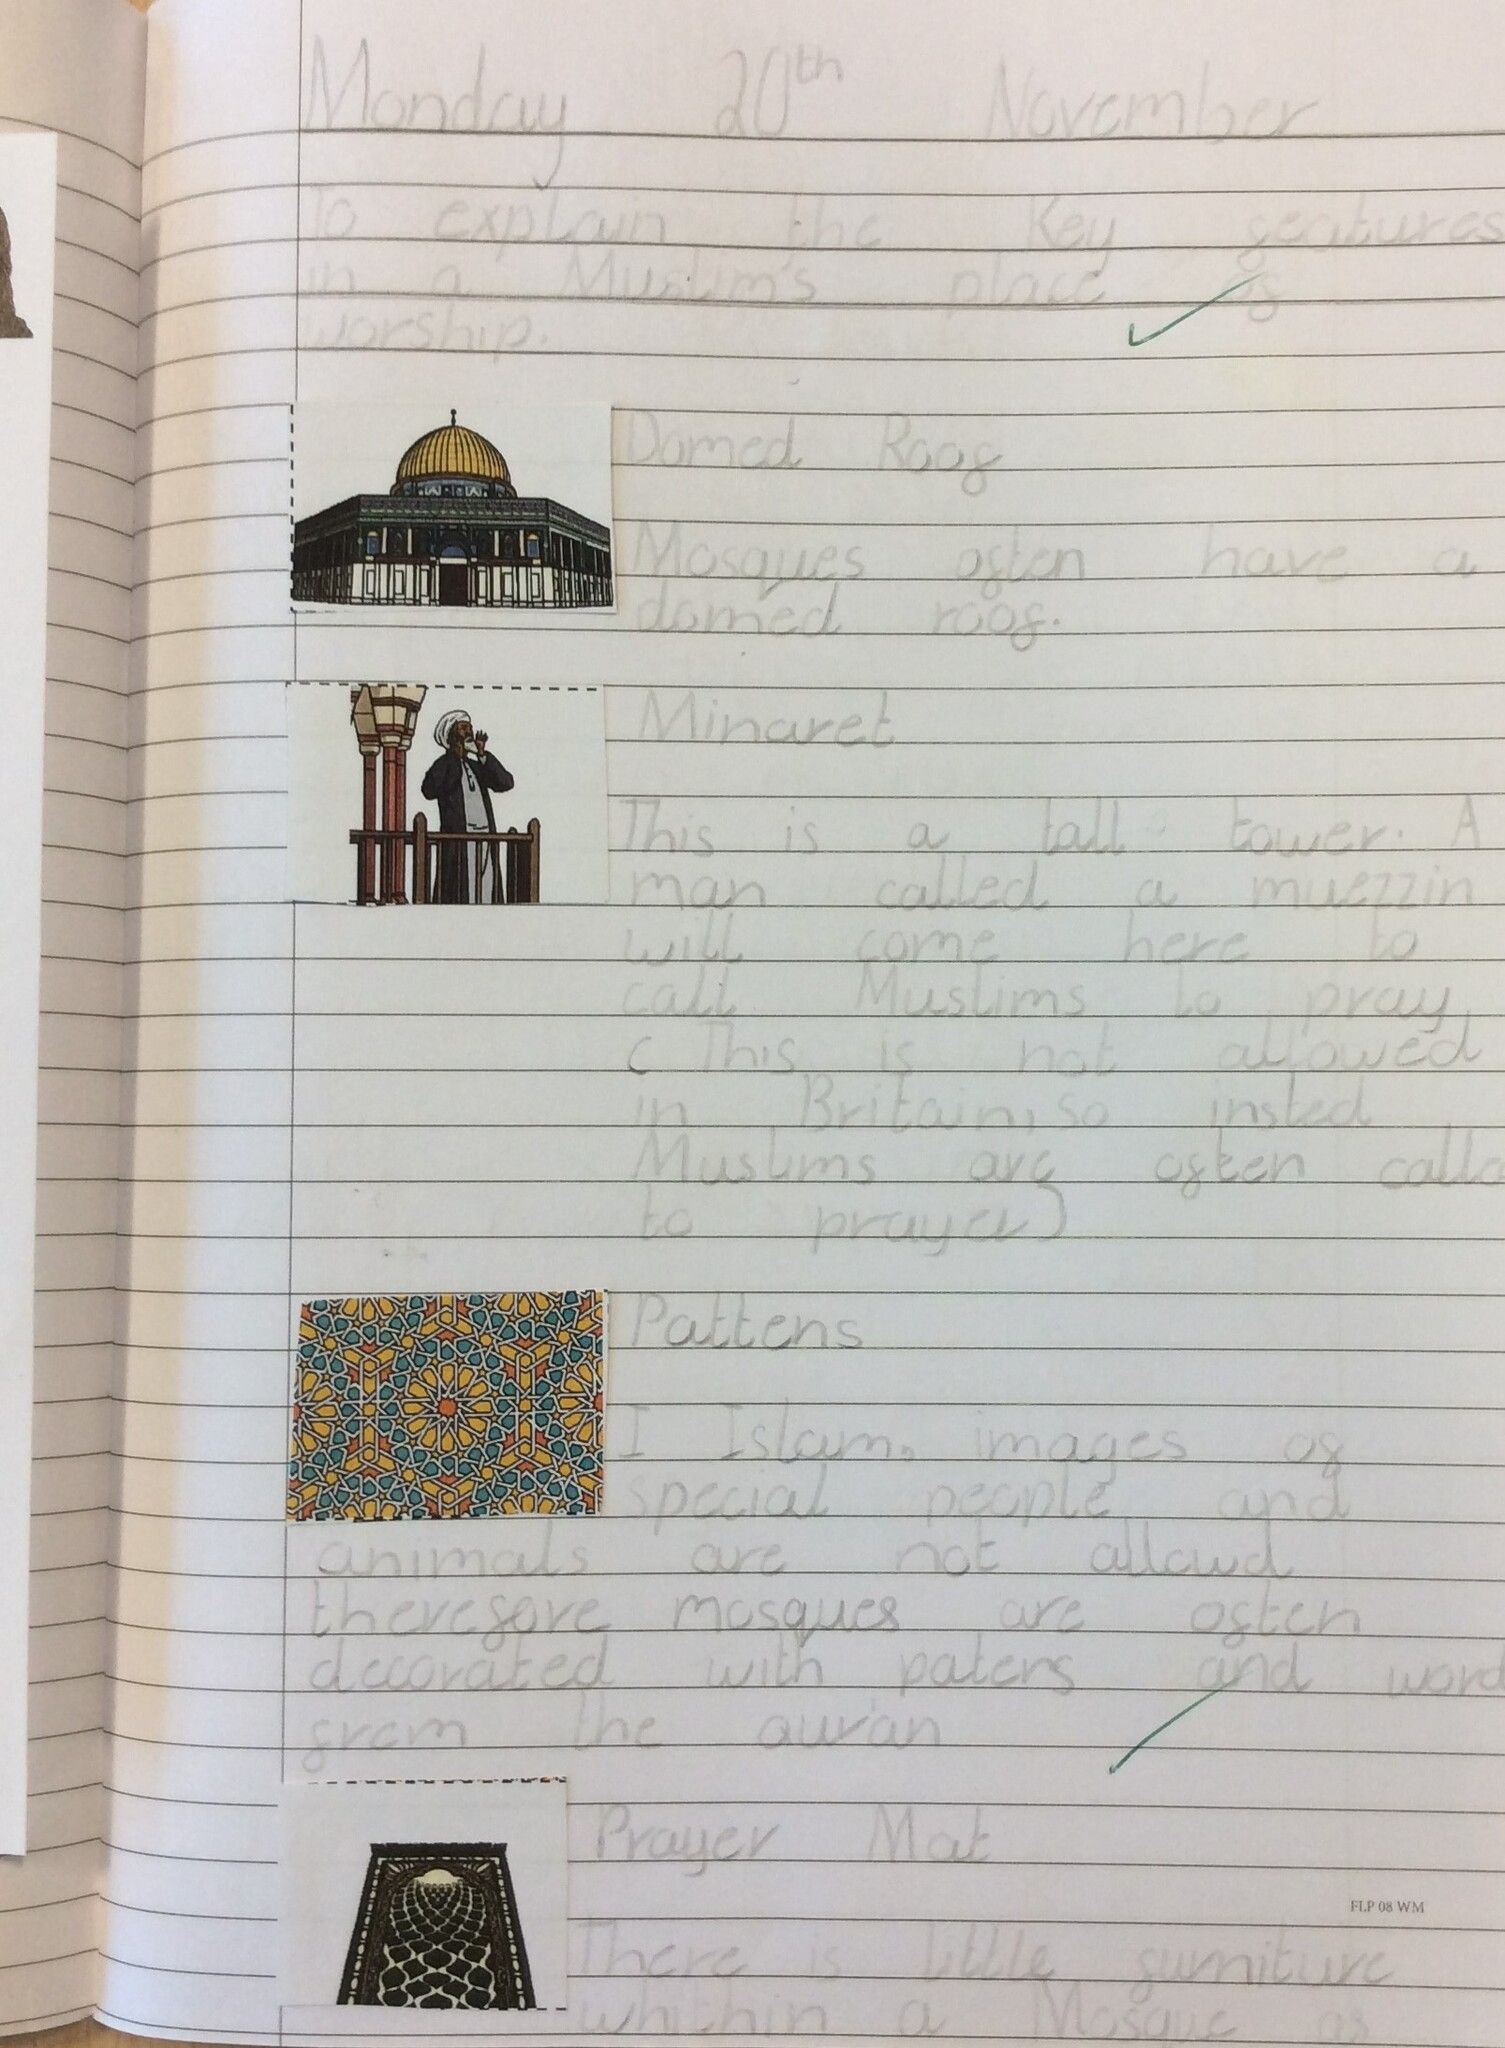 Monday 20th November
To explain the Key features
in a Muslim's place of
worship.
Domed Roof
Mosques often have a
domed roof.
Minaret
This is a tall tower. A
man called a muezzin
will come here to
call Muslims to pray
( This is not allowed
in Britain, so insted
Muslims are often calle
to prayer)
Pattens
I Islam, images of
special people and
animals are not allowd
therefore mosques are often
decorated with paters and word
from the qur'an
Prayer Mat
FLP 08 WM
There is little furniture
whithin a Mosque as